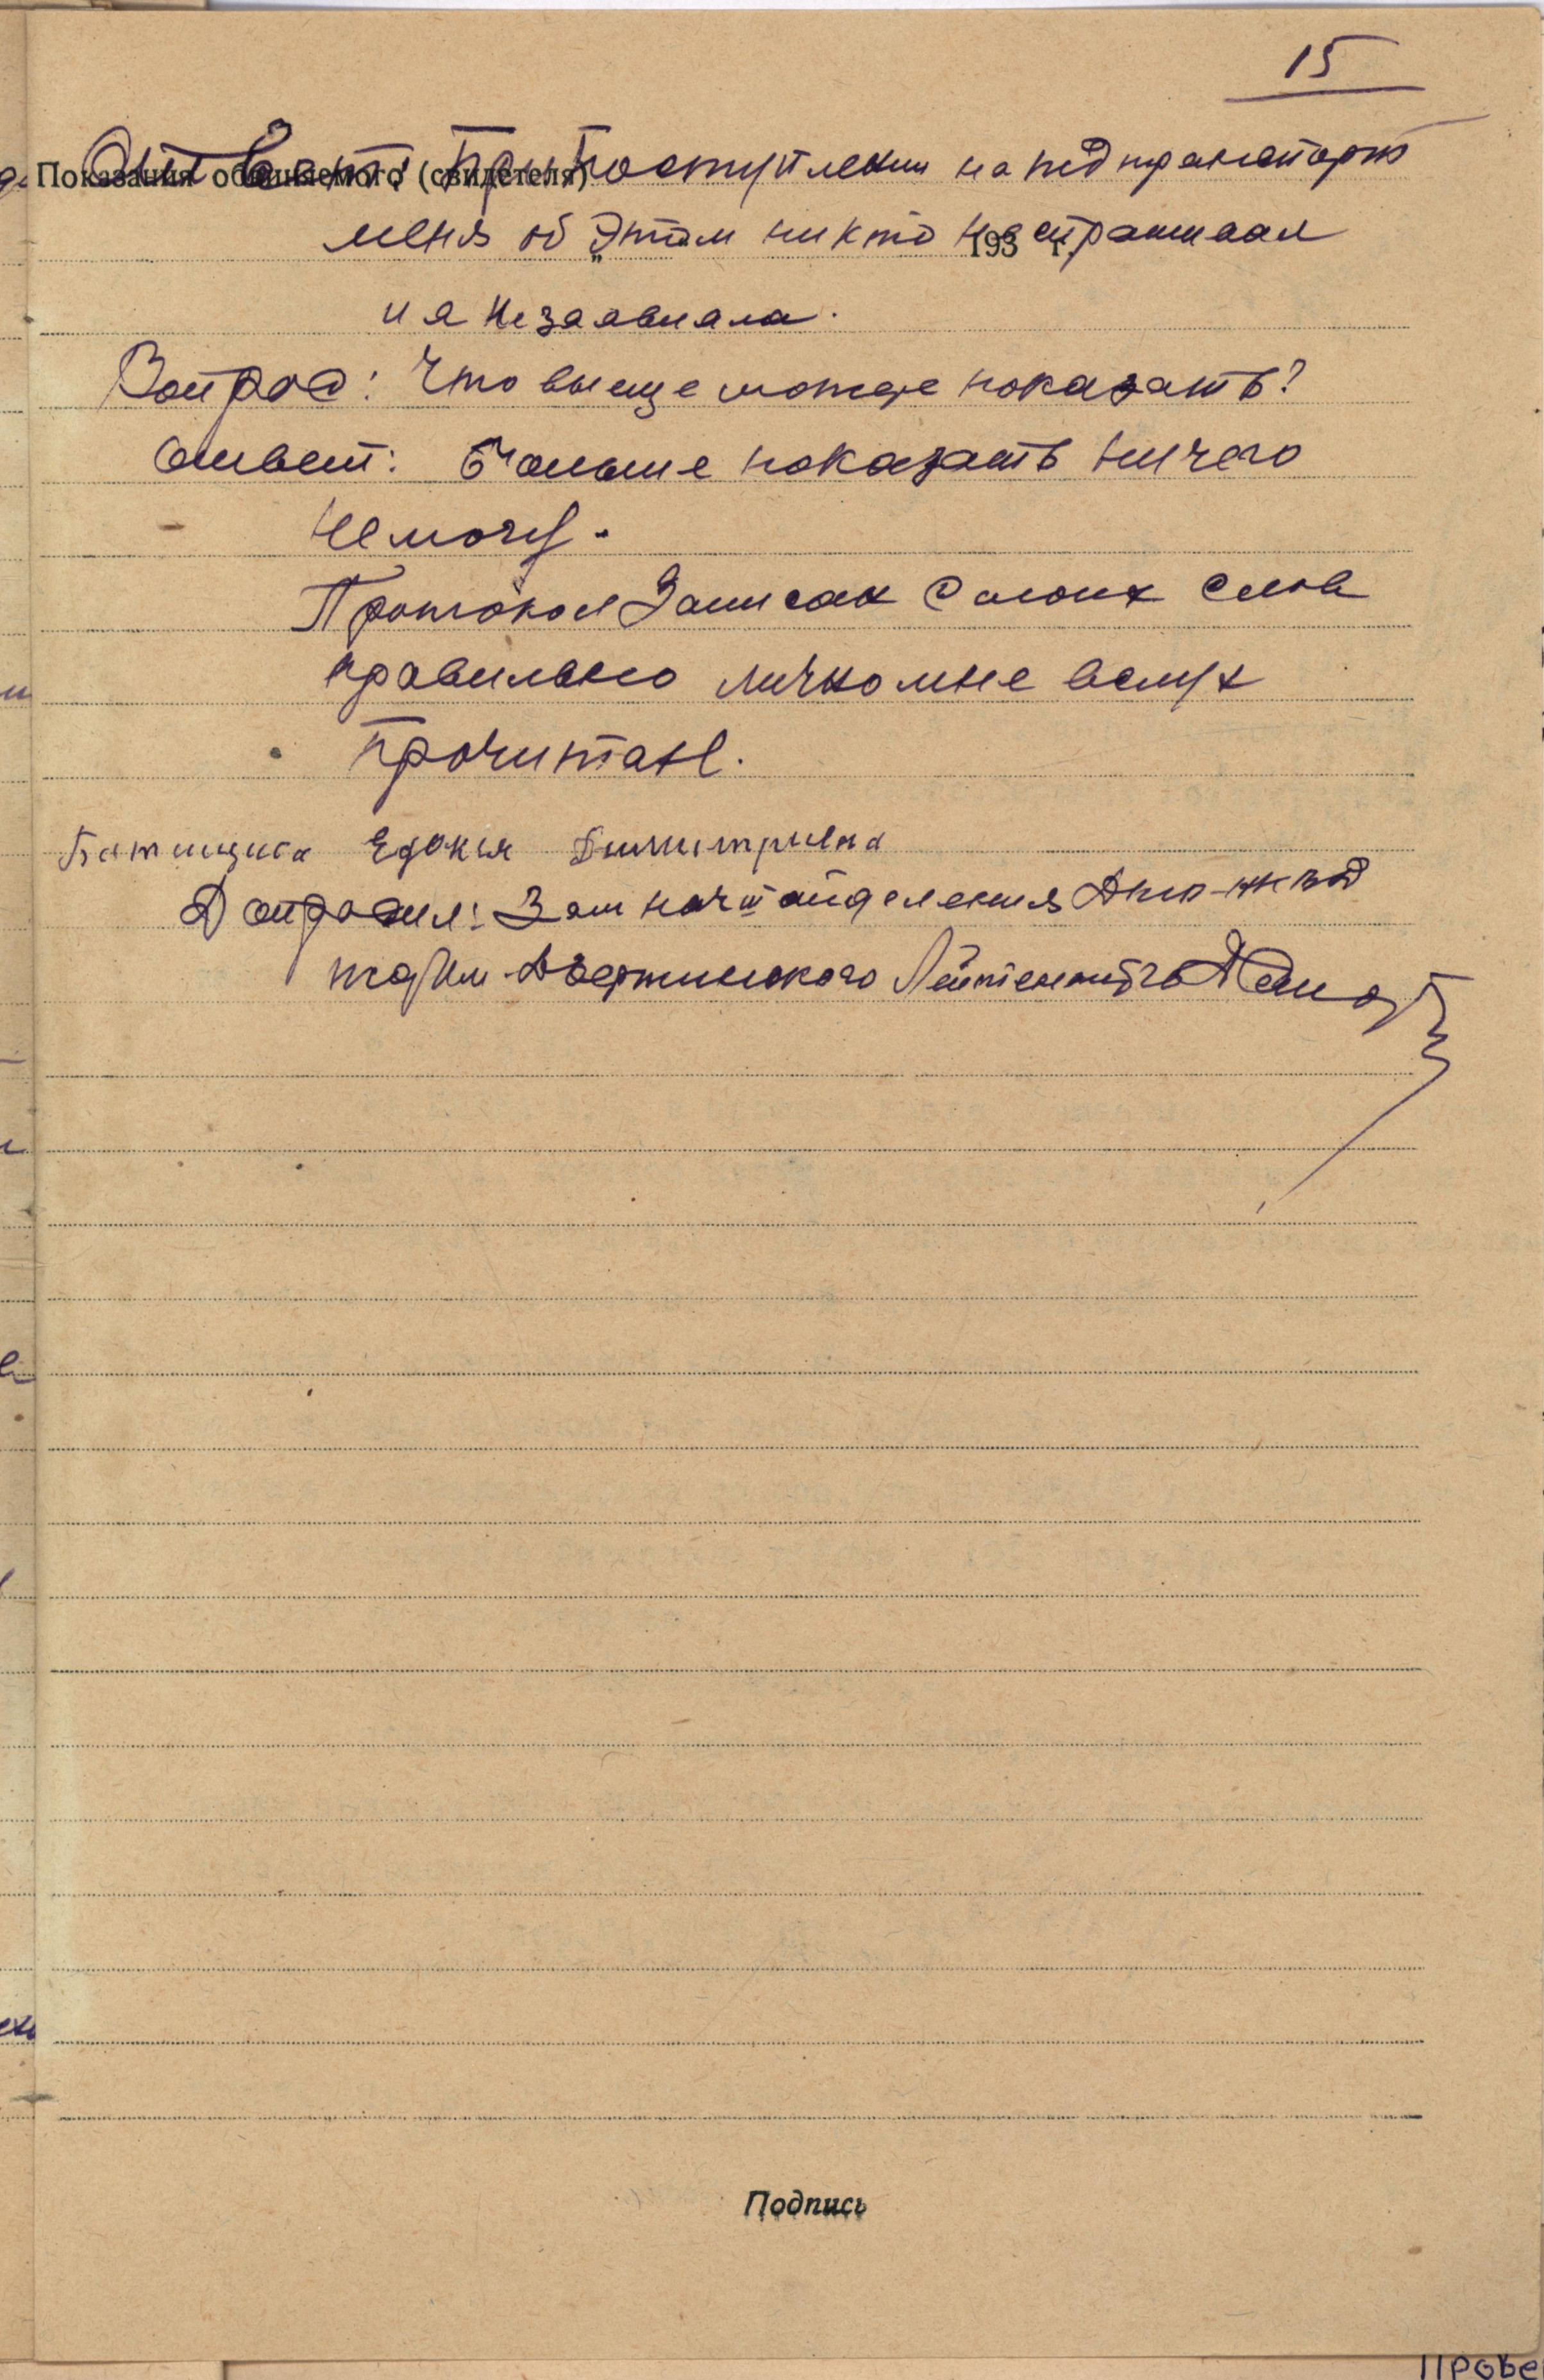 15
Показания обвиняемого (свидетеля)
Ответ: При поступлении на ж/д транспорт
„ 193 г.
меня об этом никто не спрашивал
и я не заявляла.
Вопрос: Что вы еще можете показать?
Ответ: Больше показать ничего
не могу.
Протокол записан с моих слов
правильно лично мне вслух
прочитан.
Батищива Едокия Димитривна
Допросил: Зам нач отделения НКВД
ж/д им Дзержинского Лейтенант г/б
Подпись
Прове